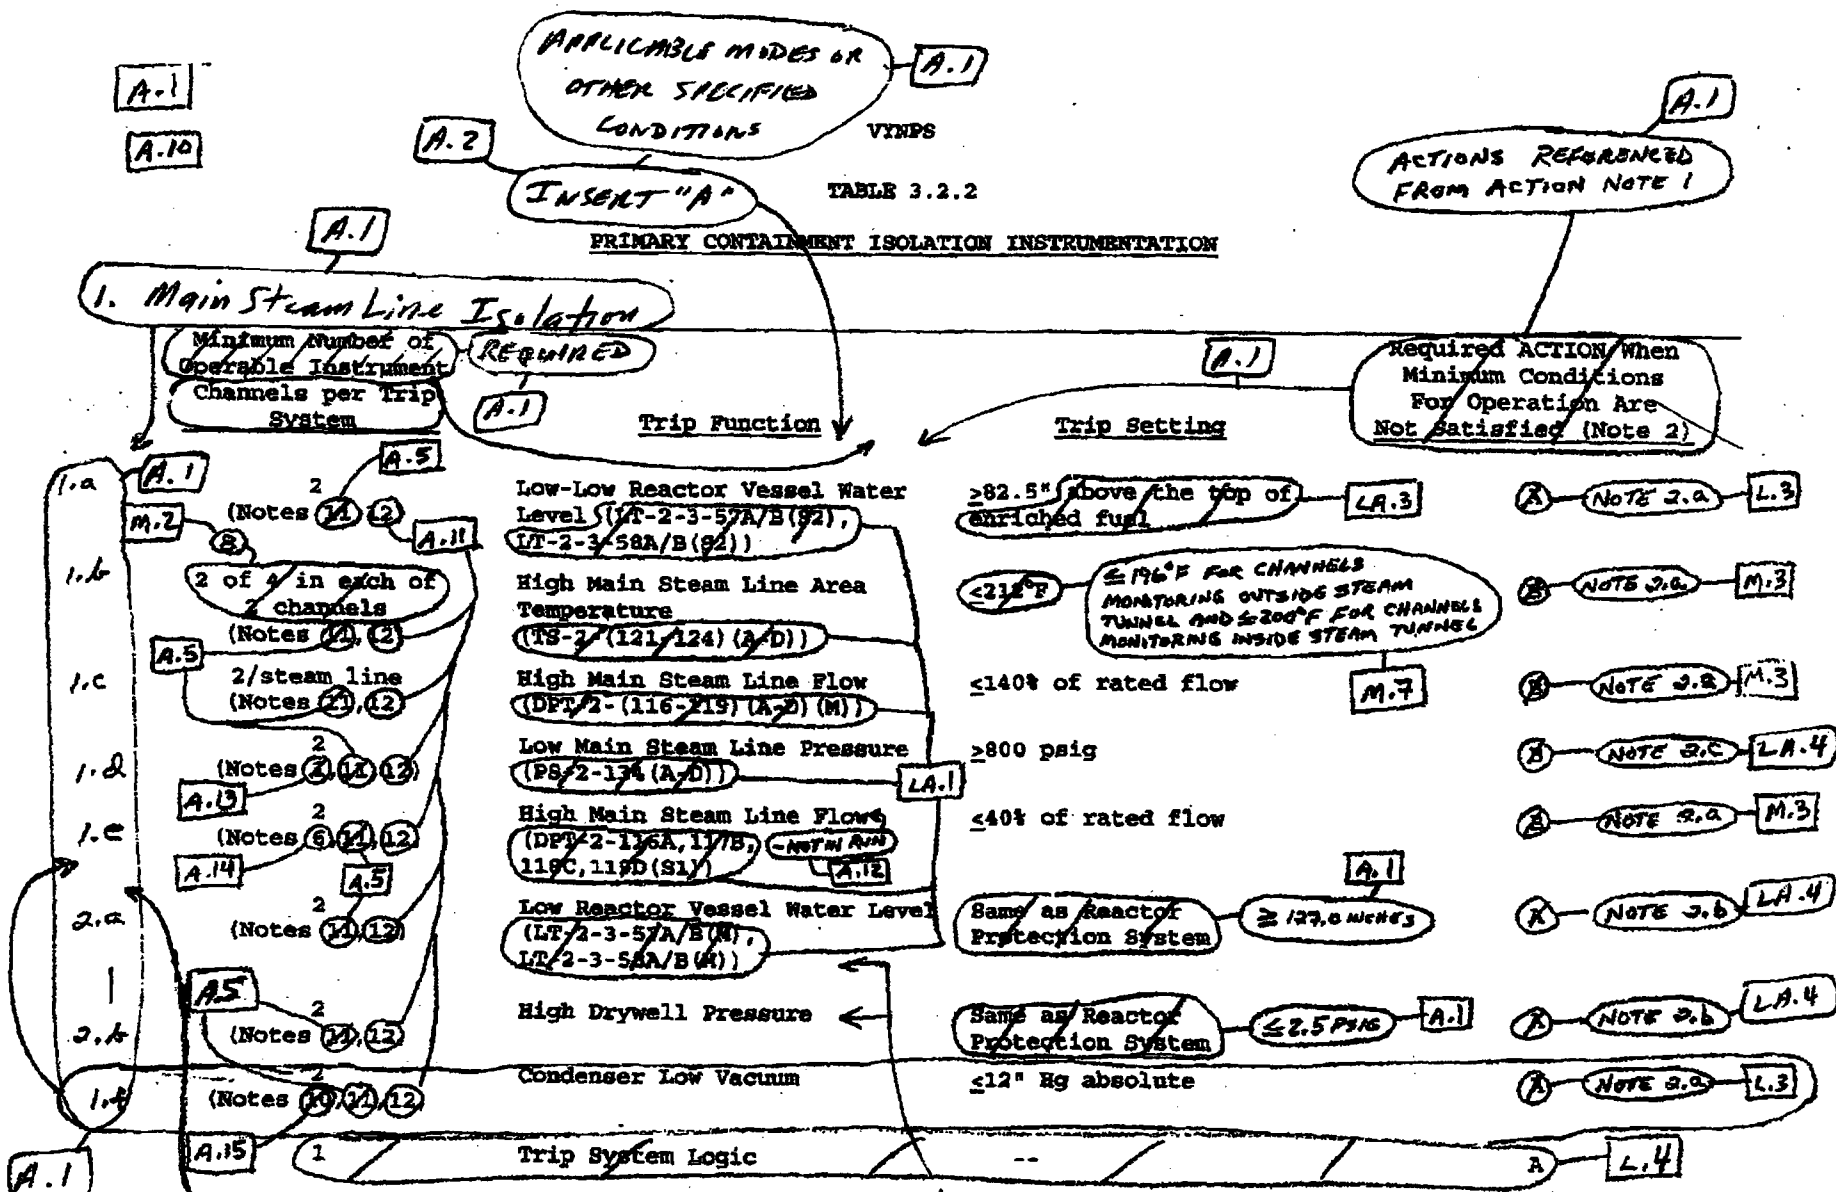 APPLICABLE MODES OR
OTHER SPECIFIED
CONDITIONS
A.1
A.1
A.10
A.2
VYNPS
A.1
ACTIONS REFERENCED
FROM ACTION NOTE 1
INSERT "A"
TABLE 3.2.2
A.1
PRIMARY CONTAINMENT ISOLATION INSTRUMENTATION
1. Main Steam Line Isolation
Minimum Number of
Operable Instrument
Channels per Trip
System
REQUIRED
A.1
Trip Function
Trip Setting
A.1
Required ACTION When
Minimum Conditions
For Operation Are
Not Satisfied (Note 2)
1.a
A.1
2
(Notes 11, 12)
A.5
M.2
8
A.11
Low-Low Reactor Vessel Water
Level (LT-2-3-57A/B(S2),
LT-2-3-58A/B(S2))
≥82.5" above the top of
enriched fuel
LA.3
A
NOTE 2.a
L.3
1.b
2 of 4 in each of
2 channels
(Notes 11, 12)
A.5
High Main Steam Line Area
Temperature
(TS-2-(121-124)(A-D))
≤212°F
≤ 196°F FOR CHANNELS
MONITORING OUTSIDE STEAM
TUNNEL AND ≤200°F FOR CHANNELS
MONITORING INSIDE STEAM TUNNEL
M.7
B
NOTE 2.a
M.3
1.c
2/steam line
(Notes 11, 12)
High Main Steam Line Flow
(DPT-2-(116-119)(A-D)(M))
≤140% of rated flow
B
NOTE 2.a
M.3
1.d
2
(Notes 1, 11, 12)
A.13
Low Main Steam Line Pressure
(PS-2-134(A-D))
LA.1
≥800 psig
B
NOTE 2.c
LA.4
1.e
2
(Notes 6, 11, 12)
A.14
A.5
High Main Steam Line Flow
(DPT-2-116A, 117B,
118C, 119D(S1))
-NOT IN RUN
A.12
≤40% of rated flow
B
NOTE 2.a
M.3
2.a
2
(Notes 11, 12)
Low Reactor Vessel Water Level
(LT-2-3-57A/B(M),
LT-2-3-58A/B(M))
Same as Reactor
Protection System
≥ 127.0 INCHES
A.1
A
NOTE 2.b
LA.4
2.b
A.5
2
(Notes 11, 12)
High Drywell Pressure
Same as Reactor
Protection System
≤2.5 PSIG
A.1
A
NOTE 2.b
LA.4
1.f
2
(Notes 10, 11, 12)
Condenser Low Vacuum
≤12" Hg absolute
A
NOTE 2.a
L.3
A.1
A.15
1
Trip System Logic
--
A
L.4